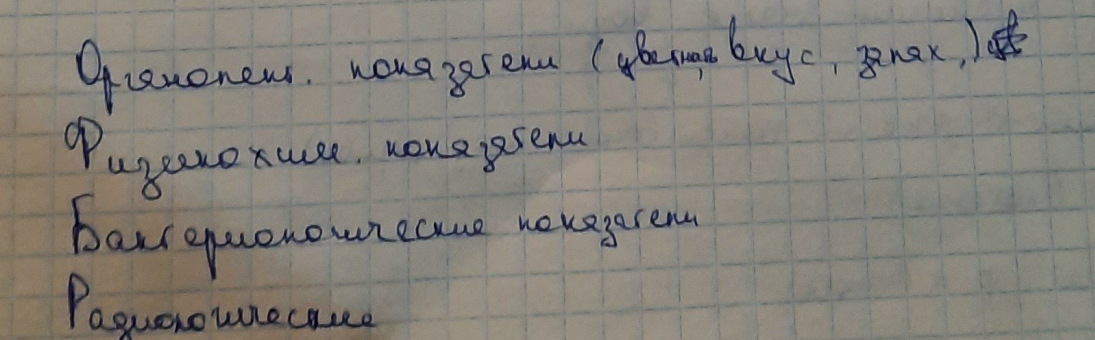 Органолепт. показатели (цветная, вкус, запах,)
Физикохим. показатели
Бактериологические показатели
Радиологические